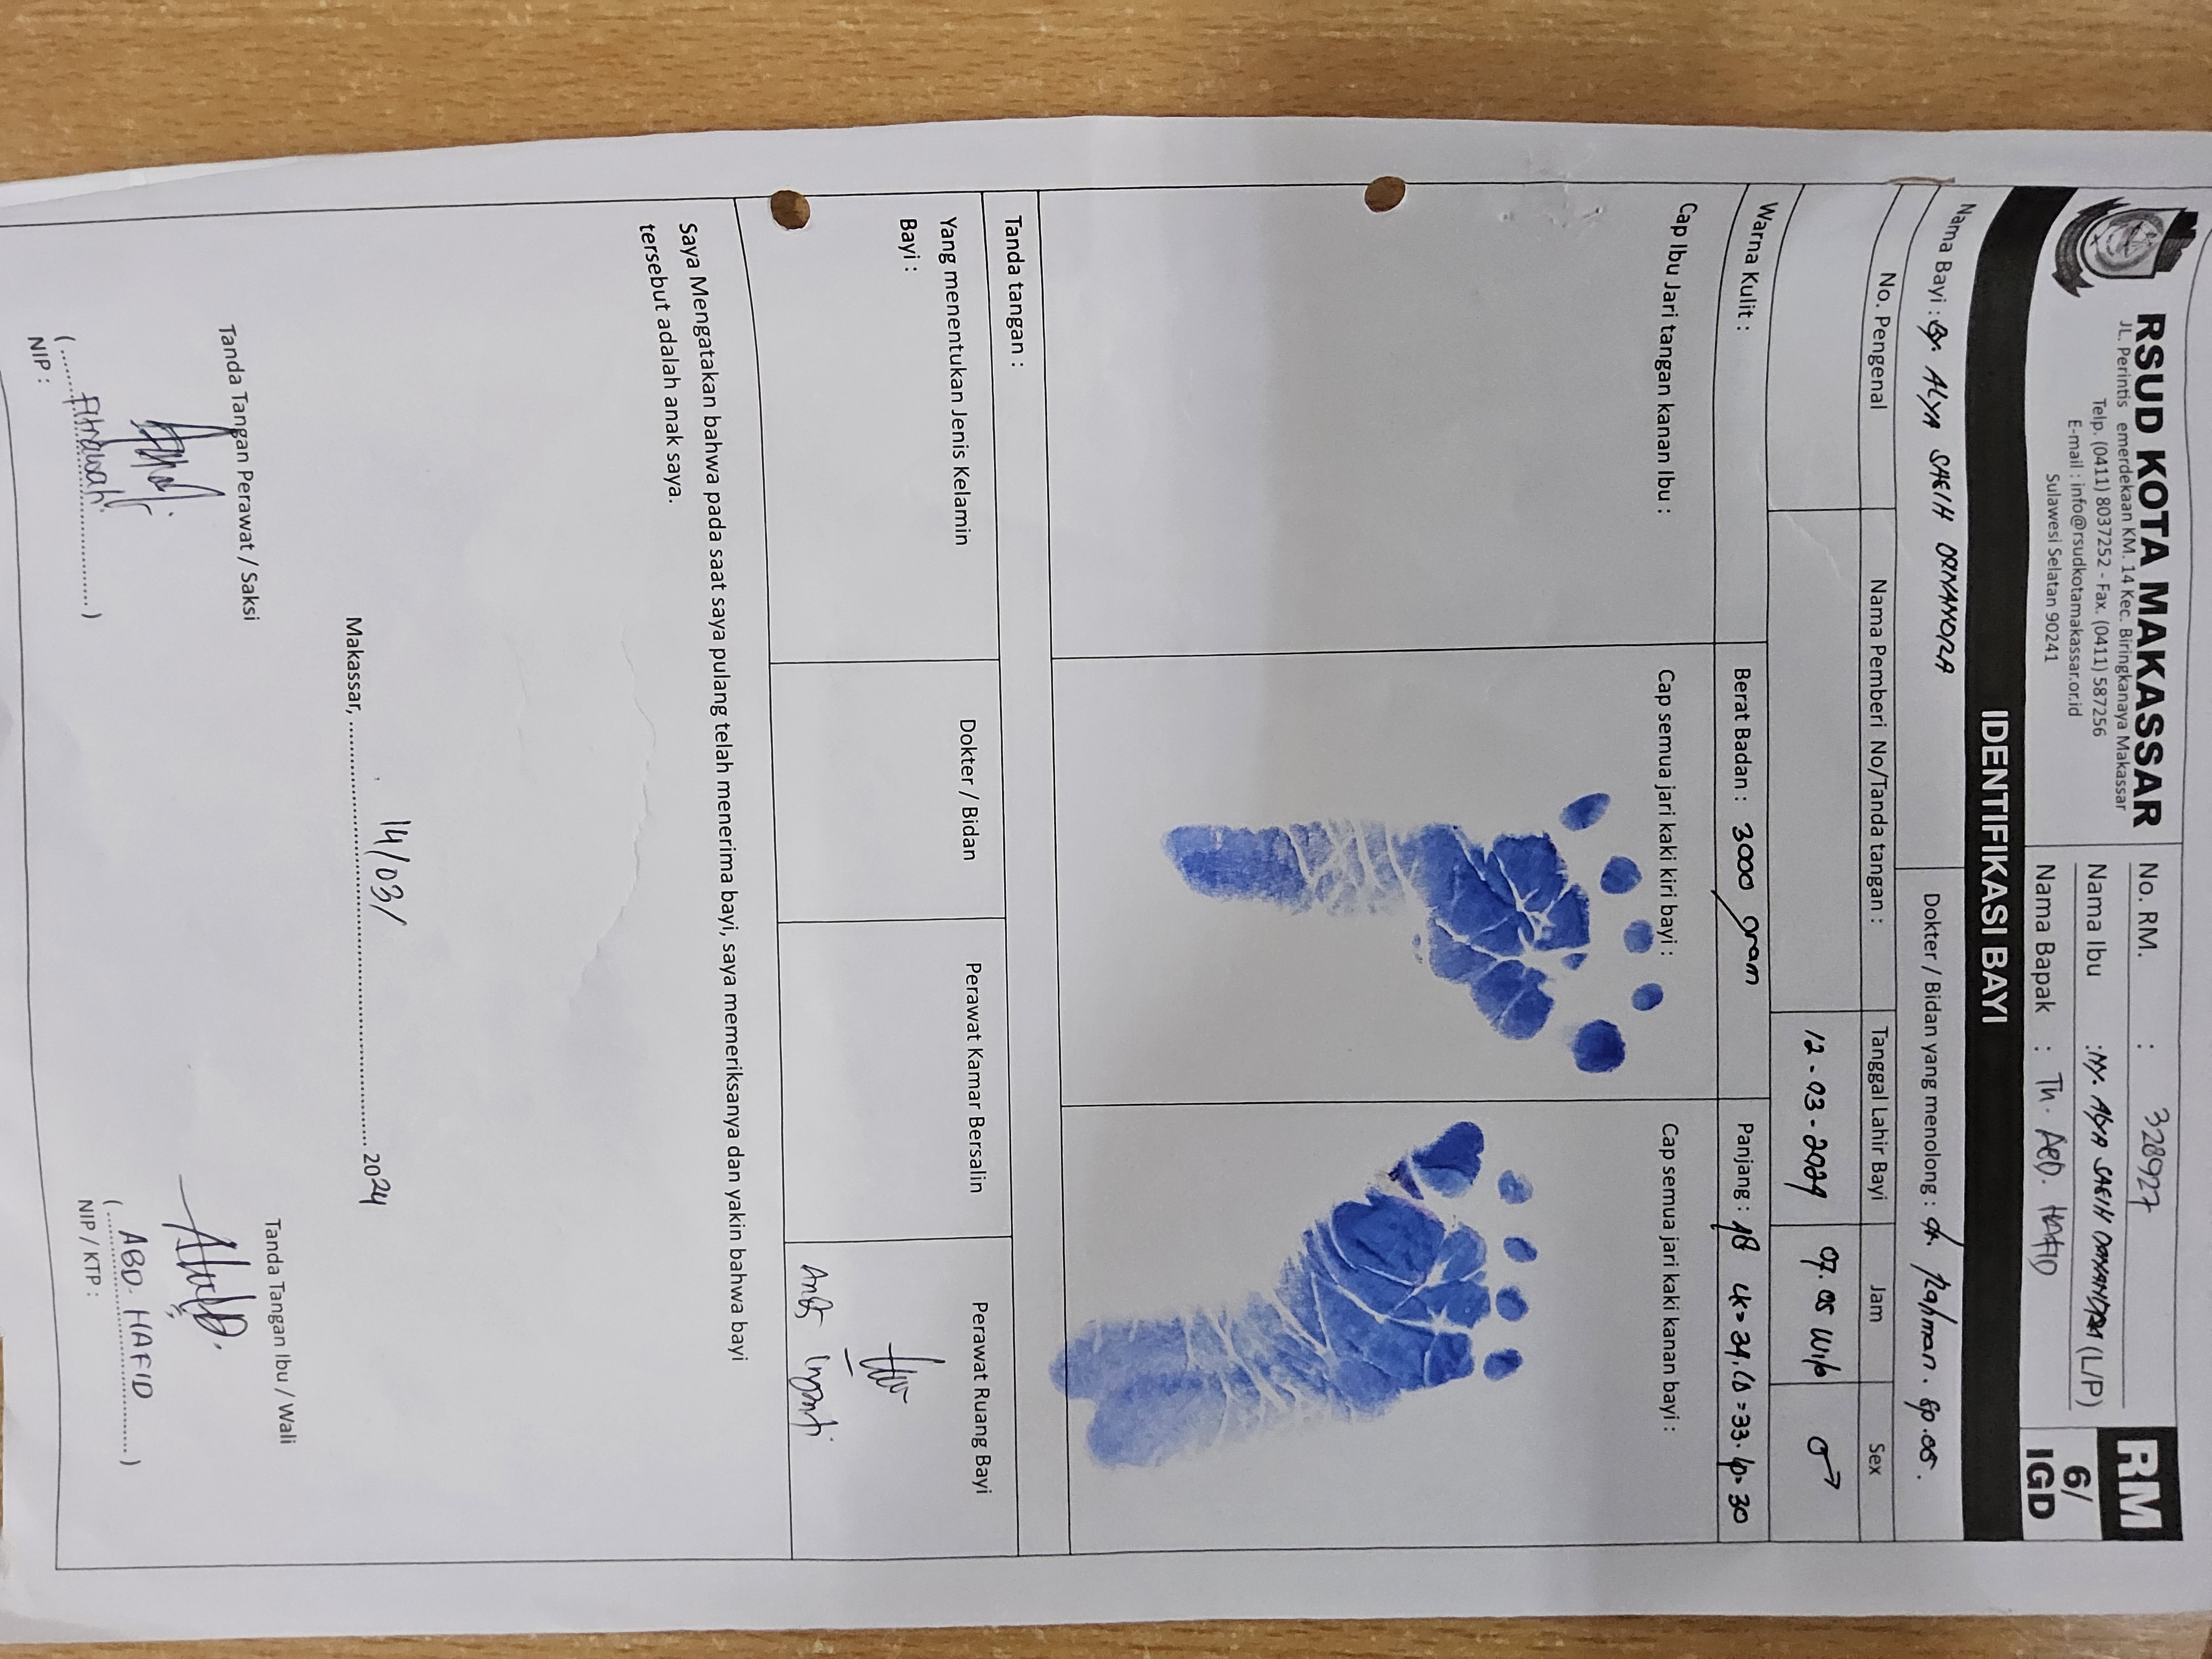 RSUD KOTA MAKASSAR
JL. Perintis emerdekaan KM. 14 Kec. Biringkanaya Makassar
Telp. (0411) 8037252 - Fax. (0411) 587256
E-mail : info@rsudkotamakassar.or.id
Sulawesi Selatan 90241
No. RM. : 328927
Nama Ibu : NY. ALYA SAEIH (L/P)
Nama Bapak : Tn. ABD. HAFID
RM
6/
IGD
IDENTIFIKASI BAYI
Nama Bayi : By. ALYA SAEIH
Dokter / Bidan yang menolong : dr. Rahman. Sp.OG.
No. Pengenal
Nama Pemberi No/Tanda tangan :
Tanggal Lahir Bayi
Jam
Sex
12 - 03 - 2024
07.05 Wib
♂
Warna Kulit :
Berat Badan : 3000 gram
Panjang : 48 LK= 34, LD =33. LP= 30
Cap Ibu Jari tangan kanan Ibu :
Cap semua jari kaki kiri bayi :
Cap semua jari kaki kanan bayi :
Tanda tangan :
Yang menentukan Jenis Kelamin
Bayi :
Dokter / Bidan
Perawat Kamar Bersalin
Perawat Ruang Bayi
Saya Mengatakan bahwa pada saat saya pulang telah menerima bayi, saya memeriksanya dan yakin bahwa bayi
tersebut adalah anak saya.
Makassar, 14/03/ 2024
Tanda Tangan Perawat / Saksi
Tanda Tangan Ibu / Wali
( ABD. HAFID )
NIP :
NIP / KTP :